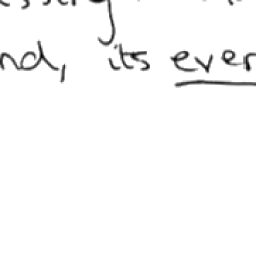 nd, its ever